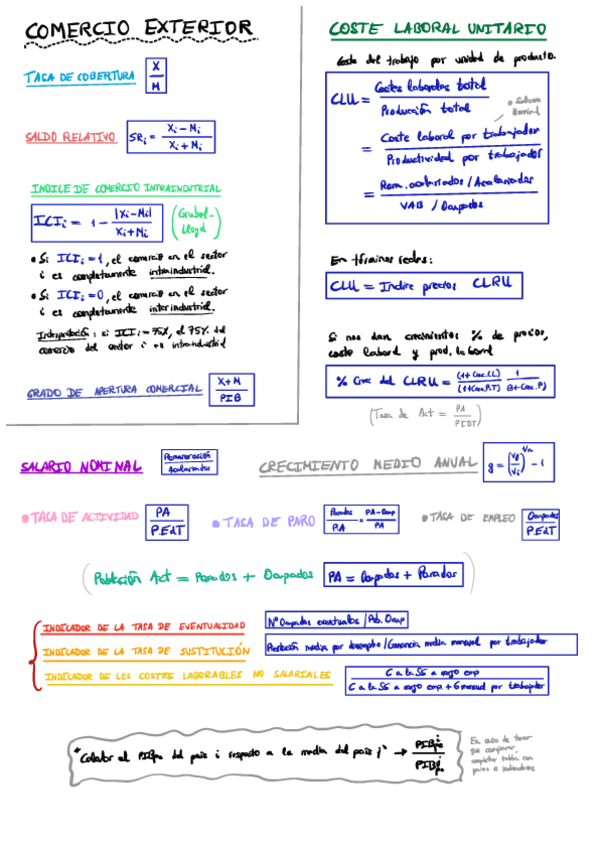 COMERCIO EXTERIOR
TASA DE COBERTURA X/M
SALDO RELATIVO SRi = Xi-Mi / Xi+Mi
INDICE DE COMERCIO INTRAINDUTRIAL
ICIi = 1 - |Xi-Mi| / Xi+Mi (Grubel-Lloyd)
• Si ICIi = 1, el comercio en el sector
i es completamente intraindustrial.
• Si ICIi = 0, el comercio en el sector
i es completamente interindustrial.
Interpretación: si ICIi = 75%, el 75% del
comercio del sector i es intraindustrial
GRADO DE APERTURA COMERCIAL X+M / PIB
COSTE LABORAL UNITARIO
Coste del trabajo por unidad de producto.
CLU = Costes laborales total / Producción total
• Salario Nominal
= Coste laboral por trabajador / Productividad por trabajador
= Rem. asalariados / Asalariados / VAB / Ocupados
En términos reales:
CLU = Indire precios CLRU
Si nos dan crecimientos % de precios,
coste laboral y prod. laboral
% Crec del CLRU = (1+Crec.CL) / (1+Crec.P.T) 1 / (1+Crec.P)
(Tasa de Act = PA / PEDT)
SALARIO NOMINAL Remuneración / Asalariados
CRECIMIENTO MEDIO ANUAL g = (Vf / Vi)^1/n - 1
• TASA DE ACTIVIDAD PA / P.EdT
• TASA DE PARO Parados / P.A = PA-Ocup / PA
• TASA DE EMPLEO Ocupados / P.EdT
(Población Act = Parados + Ocupados PA = Ocupados + Parados)
INDICADOR DE LA TASA DE EVENTUALIDAD Nº Ocupados eventuales / Pob. Ocup
INDICADOR DE LA TASA DE SUSTITUCIÓN Prestación media por desempleo / Ganancia media mensual por trabajador
INDICADOR DE LOS COSTES LABORABLES NO SALARIALES C a la SS a cargo emp / C a la SS a cargo emp. + G mensual por trabajador
"Calcular el PIBpc del país i respecto a la media del país j" → PIBpc i / PIBpc j
En caso de tener
que comparar,
completar tabla con
países e indicadores